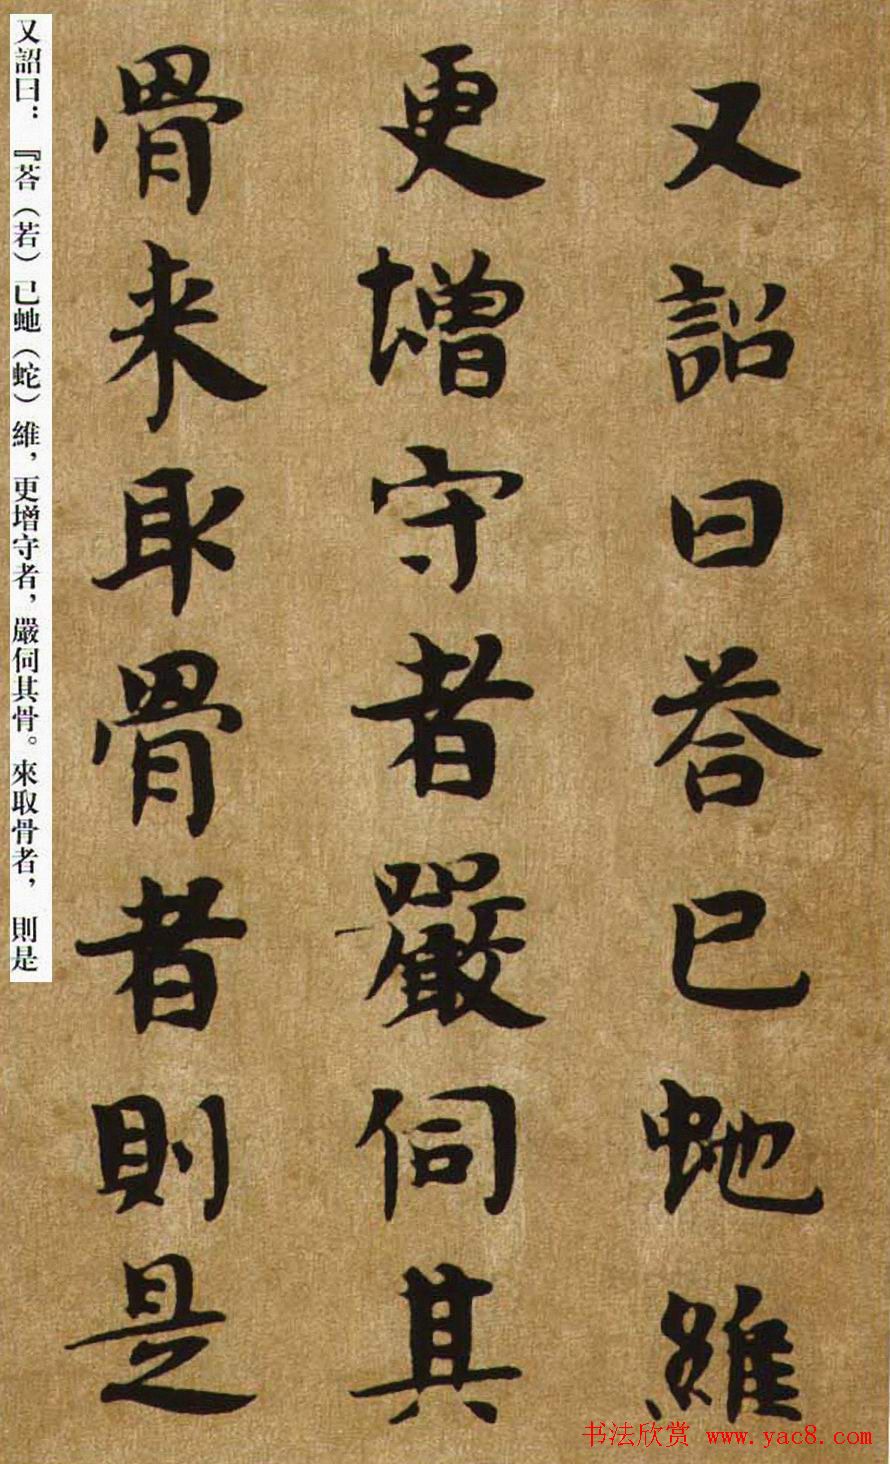 又詔曰荅已虵維
更增守者嚴伺其
骨来取骨者則是
又詔曰：『荅（若）已虵（蛇）維，更增守者，嚴伺其骨。來取骨者，則是
书法欣赏 www.yac8.com